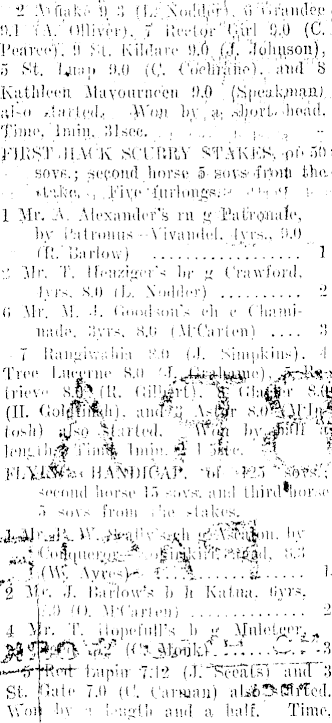 2 Affiake 9 3 (L. Nodder), 6 Grandee
9.1 (A. Olliver), 7 Rector Girl 9.0 (C.
Pearce), 9 St. Kildare 9.0 (J. Johnson),
5 St. Luap 9.0 (C. Cochrane), and 8
Kathleen Mavourneen 9.0 (Speakman)
also started. Won by a short head.
Time, 1min. 31sec.
FIRST HACK SCURRY STAKES, of 50
sovs.; second horse 5 sovs from the
stake. Five furlongs.
1 Mr. A. Alexander's rn g Patronale,
by Patronus—Vivandel, 4yrs., 9.0
(R. Barlow) .................. 1
2 Mr. T. Henziger's br g Crawford,
4yrs, 8.0 (L. Nodder) .......... 2
6 Mr. M. J. Goodson's ch c Chami-
nade, 3yrs, 8.6 (McCarten) .... 3
7 Rangiwahia 8.0 (J. Simpkins), 4
Tree Lucerne 8.0 (J. Grahame), 5 Re-
trieve 8.0 (R. Gilbert), 8 Glacier 8.0
(H. Goldfinch), and 3 Astor 8.0 (McIn-
tosh) also started. Won by half
length. Time, 1min. 2
FLYING HANDICAP, of 125 sovs.;
second horse 15 sovs, and third horse
5 sovs from the stakes.
1 Mr. W. ch g by
Conqueror— 8.3
(W. Ayres) 1
2 Mr. J. Barlow's b h Katua, 6yrs,
(O. McCarten) .............. 2
4 Mr. T. Hopefull's b g Muleteer,
(C. Monk) 3
5 Red Lupin 7.12 (J. Sceats) and 3
St. Gate 7.0 (C. Carman) also started.
Won by a length and a half. Time,